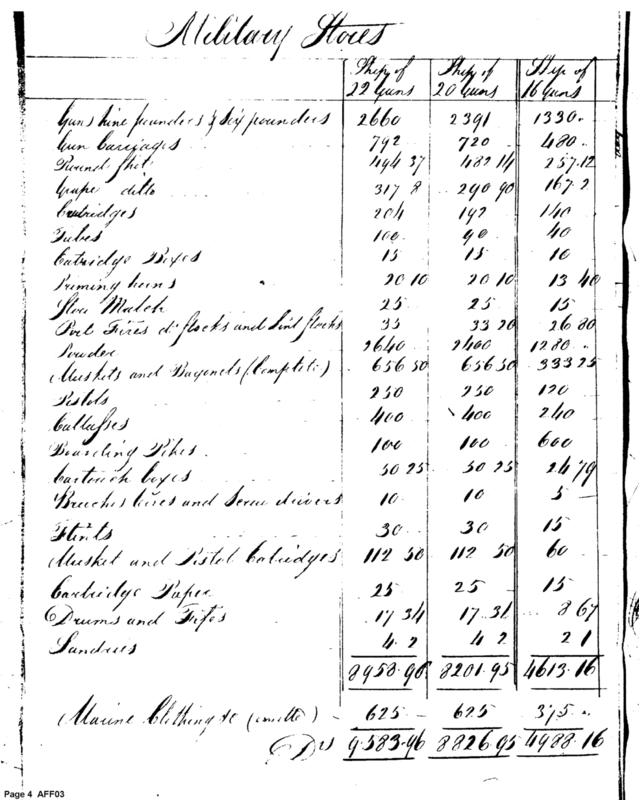 Military Stores
Ship of Ship of Ship of
22 Guns 20 Guns 16 Guns
Guns nine pounders & six pounders 2660 2391 1330
Gun Carriages 792 720 480
Round Shot 494 37 482 14 257.12
Grape ditto 317 8 290 90 167.2
Catridges 204 192 140
Tubes 100 90 40
Catridge Boxes 15 15 10
Priming horns 20 10 20 10 13 40
Slow Match 25 25 15
Port Fires do Stocks and Lint Stocks 33 33 20 26 80
Powder 2640 2400 1280
Muskets and Bayonets (Complete) 656 50 656 50 333 25
Pistols 250 250 120
Cutlasses 400 400 240
Boarding Pikes 100 100 600
Cartouch boxes 50 25 50 25 24 79
Breeches wires and Screw drivers 10 10 5
Flints 30 30 15
Musket and Pistol Catridges 112 50 112 50 60
Cartridge Paper 25 25 15
Drums and Fifes 17 34 17.31 8 67
Sundries 4 2 4 2 2 1
8958.96 8201.95 4613.16
Marine Clothing &c 625 625 375
Drs 9.583.96 8826.95 4988.16
Page 4 AFF03